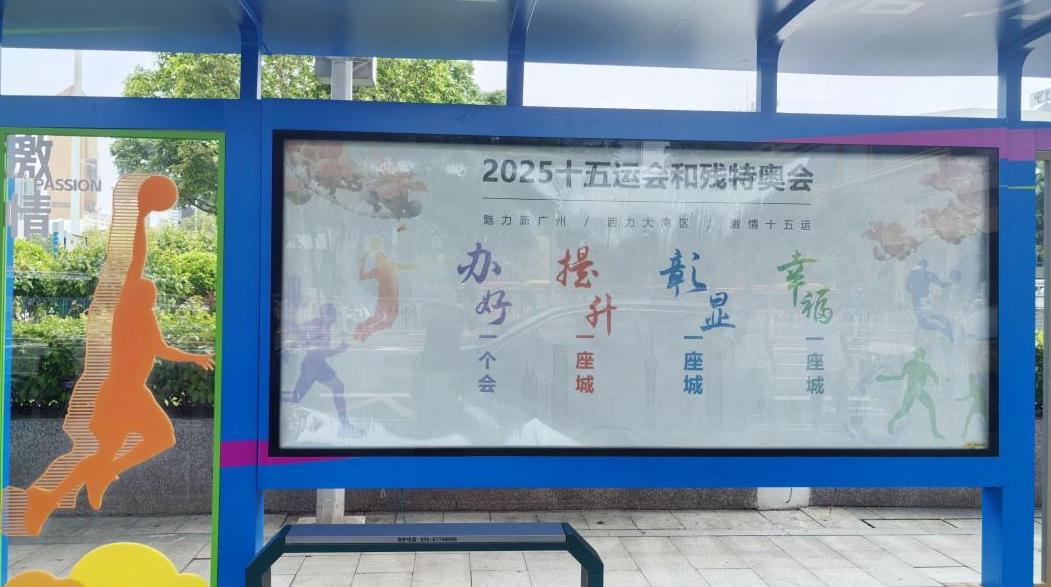 激情
PASSION
2025十五运会和残特奥会
魅力新广州 / 活力大湾区 / 激情十五运
办好一个会
提升一座城
彰显一座城
幸福一座城